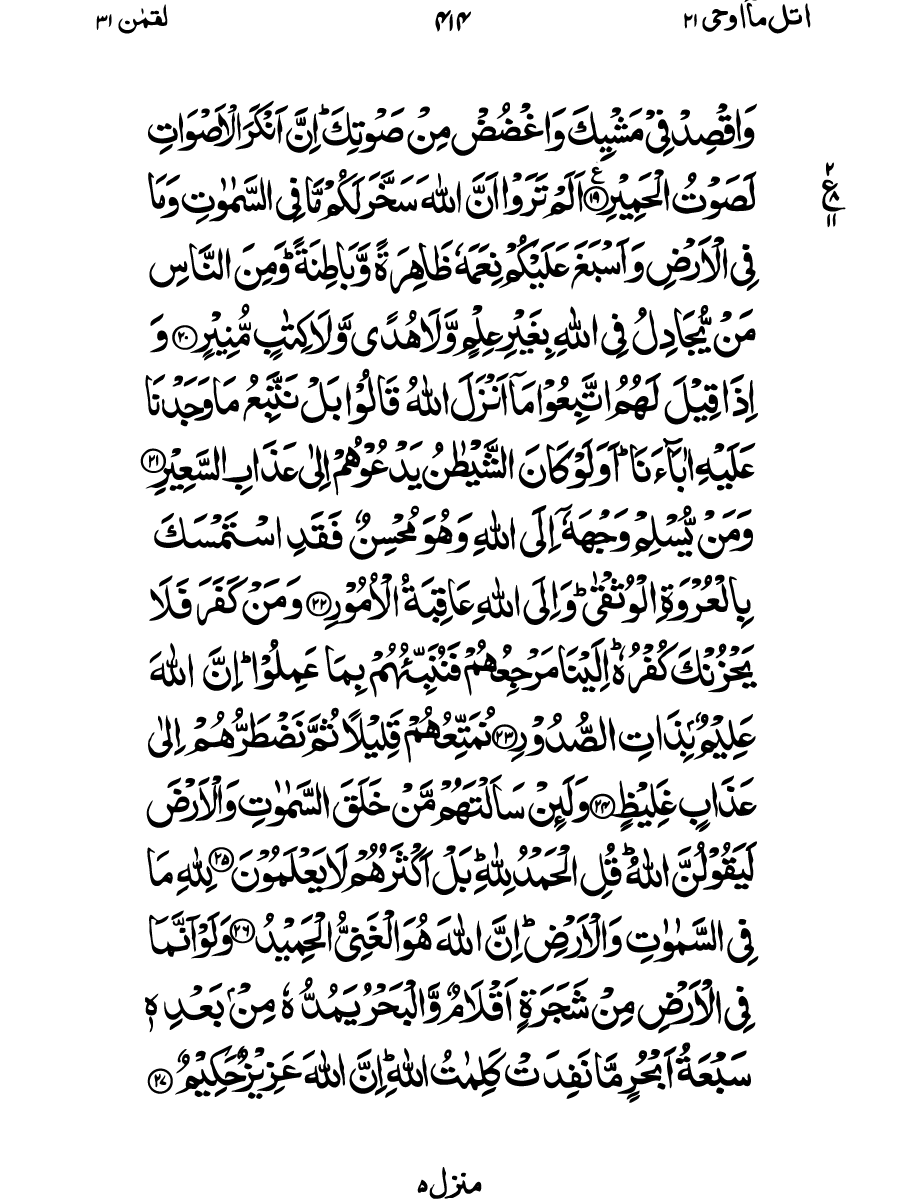 اتل ماۤ اوحی ۲۱
۴۱۴
لقمٰن ۳۱
وَاقْصِدْ فِیْ مَشْیِكَ وَاغْضُضْ مِنْ صَوْتِكَ ؕ اِنَّ اَنْكَرَ الْاَصْوَاتِ
لَصَوْتُ الْحَمِیْرِ ۧ﴿۱۹﴾ اَلَمْ تَرَوْا اَنَّ اللّٰهَ سَخَّرَ لَكُمْ مَّا فِی السَّمٰوٰتِ وَمَا
۲
ع
۸
۱۱
فِی الْاَرْضِ وَاَسْبَغَ عَلَیْكُمْ نِعَمَهٗ ظَاهِرَةً وَّبَاطِنَةً ؕ وَمِنَ النَّاسِ
مَنْ یُّجَادِلُ فِی اللّٰهِ بِغَیْرِ عِلْمٍ وَّلَا هُدًی وَّلَا كِتٰبٍ مُّنِیْرٍ ﴿۲۰﴾ وَ
اِذَا قِیْلَ لَهُمُ اتَّبِعُوْا مَاۤ اَنْزَلَ اللّٰهُ قَالُوْا بَلْ نَتَّبِعُ مَا وَجَدْنَا
عَلَیْهِ اٰبَآءَنَا ؕ اَوَلَوْ كَانَ الشَّیْطٰنُ یَدْعُوْهُمْ اِلٰی عَذَابِ السَّعِیْرِ ﴿۲۱﴾
وَمَنْ یُّسْلِمْ وَجْهَهٗۤ اِلَی اللّٰهِ وَهُوَ مُحْسِنٌ فَقَدِ اسْتَمْسَكَ
بِالْعُرْوَةِ الْوُثْقٰی ؕ وَاِلَی اللّٰهِ عَاقِبَةُ الْاُمُوْرِ ﴿۲۲﴾ وَمَنْ كَفَرَ فَلَا
یَحْزُنْكَ كُفْرُهٗ ؕ اِلَیْنَا مَرْجِعُهُمْ فَنُنَبِّئُهُمْ بِمَا عَمِلُوْا ؕ اِنَّ اللّٰهَ
عَلِیْمٌۢ بِذَاتِ الصُّدُوْرِ ﴿۲۳﴾ نُمَتِّعُهُمْ قَلِیْلًا ثُمَّ نَضْطَرُّهُمْ اِلٰی
عَذَابٍ غَلِیْظٍ ﴿۲۴﴾ وَلَىِٕنْ سَاَلْتَهُمْ مَّنْ خَلَقَ السَّمٰوٰتِ وَالْاَرْضَ
لَیَقُوْلُنَّ اللّٰهُ ؕ قُلِ الْحَمْدُ لِلّٰهِ ؕ بَلْ اَكْثَرُهُمْ لَا یَعْلَمُوْنَ ﴿۲۵﴾ لِلّٰهِ مَا
فِی السَّمٰوٰتِ وَالْاَرْضِ ؕ اِنَّ اللّٰهَ هُوَ الْغَنِیُّ الْحَمِیْدُ ﴿۲۶﴾ وَلَوْ اَنَّمَا
فِی الْاَرْضِ مِنْ شَجَرَةٍ اَقْلَامٌ وَّالْبَحْرُ یَمُدُّهٗ مِنْۢ بَعْدِهٖ
سَبْعَةُ اَبْحُرٍ مَّا نَفِدَتْ كَلِمٰتُ اللّٰهِ ؕ اِنَّ اللّٰهَ عَزِیْزٌ حَكِیْمٌ ﴿۲۷﴾
منزل ۵